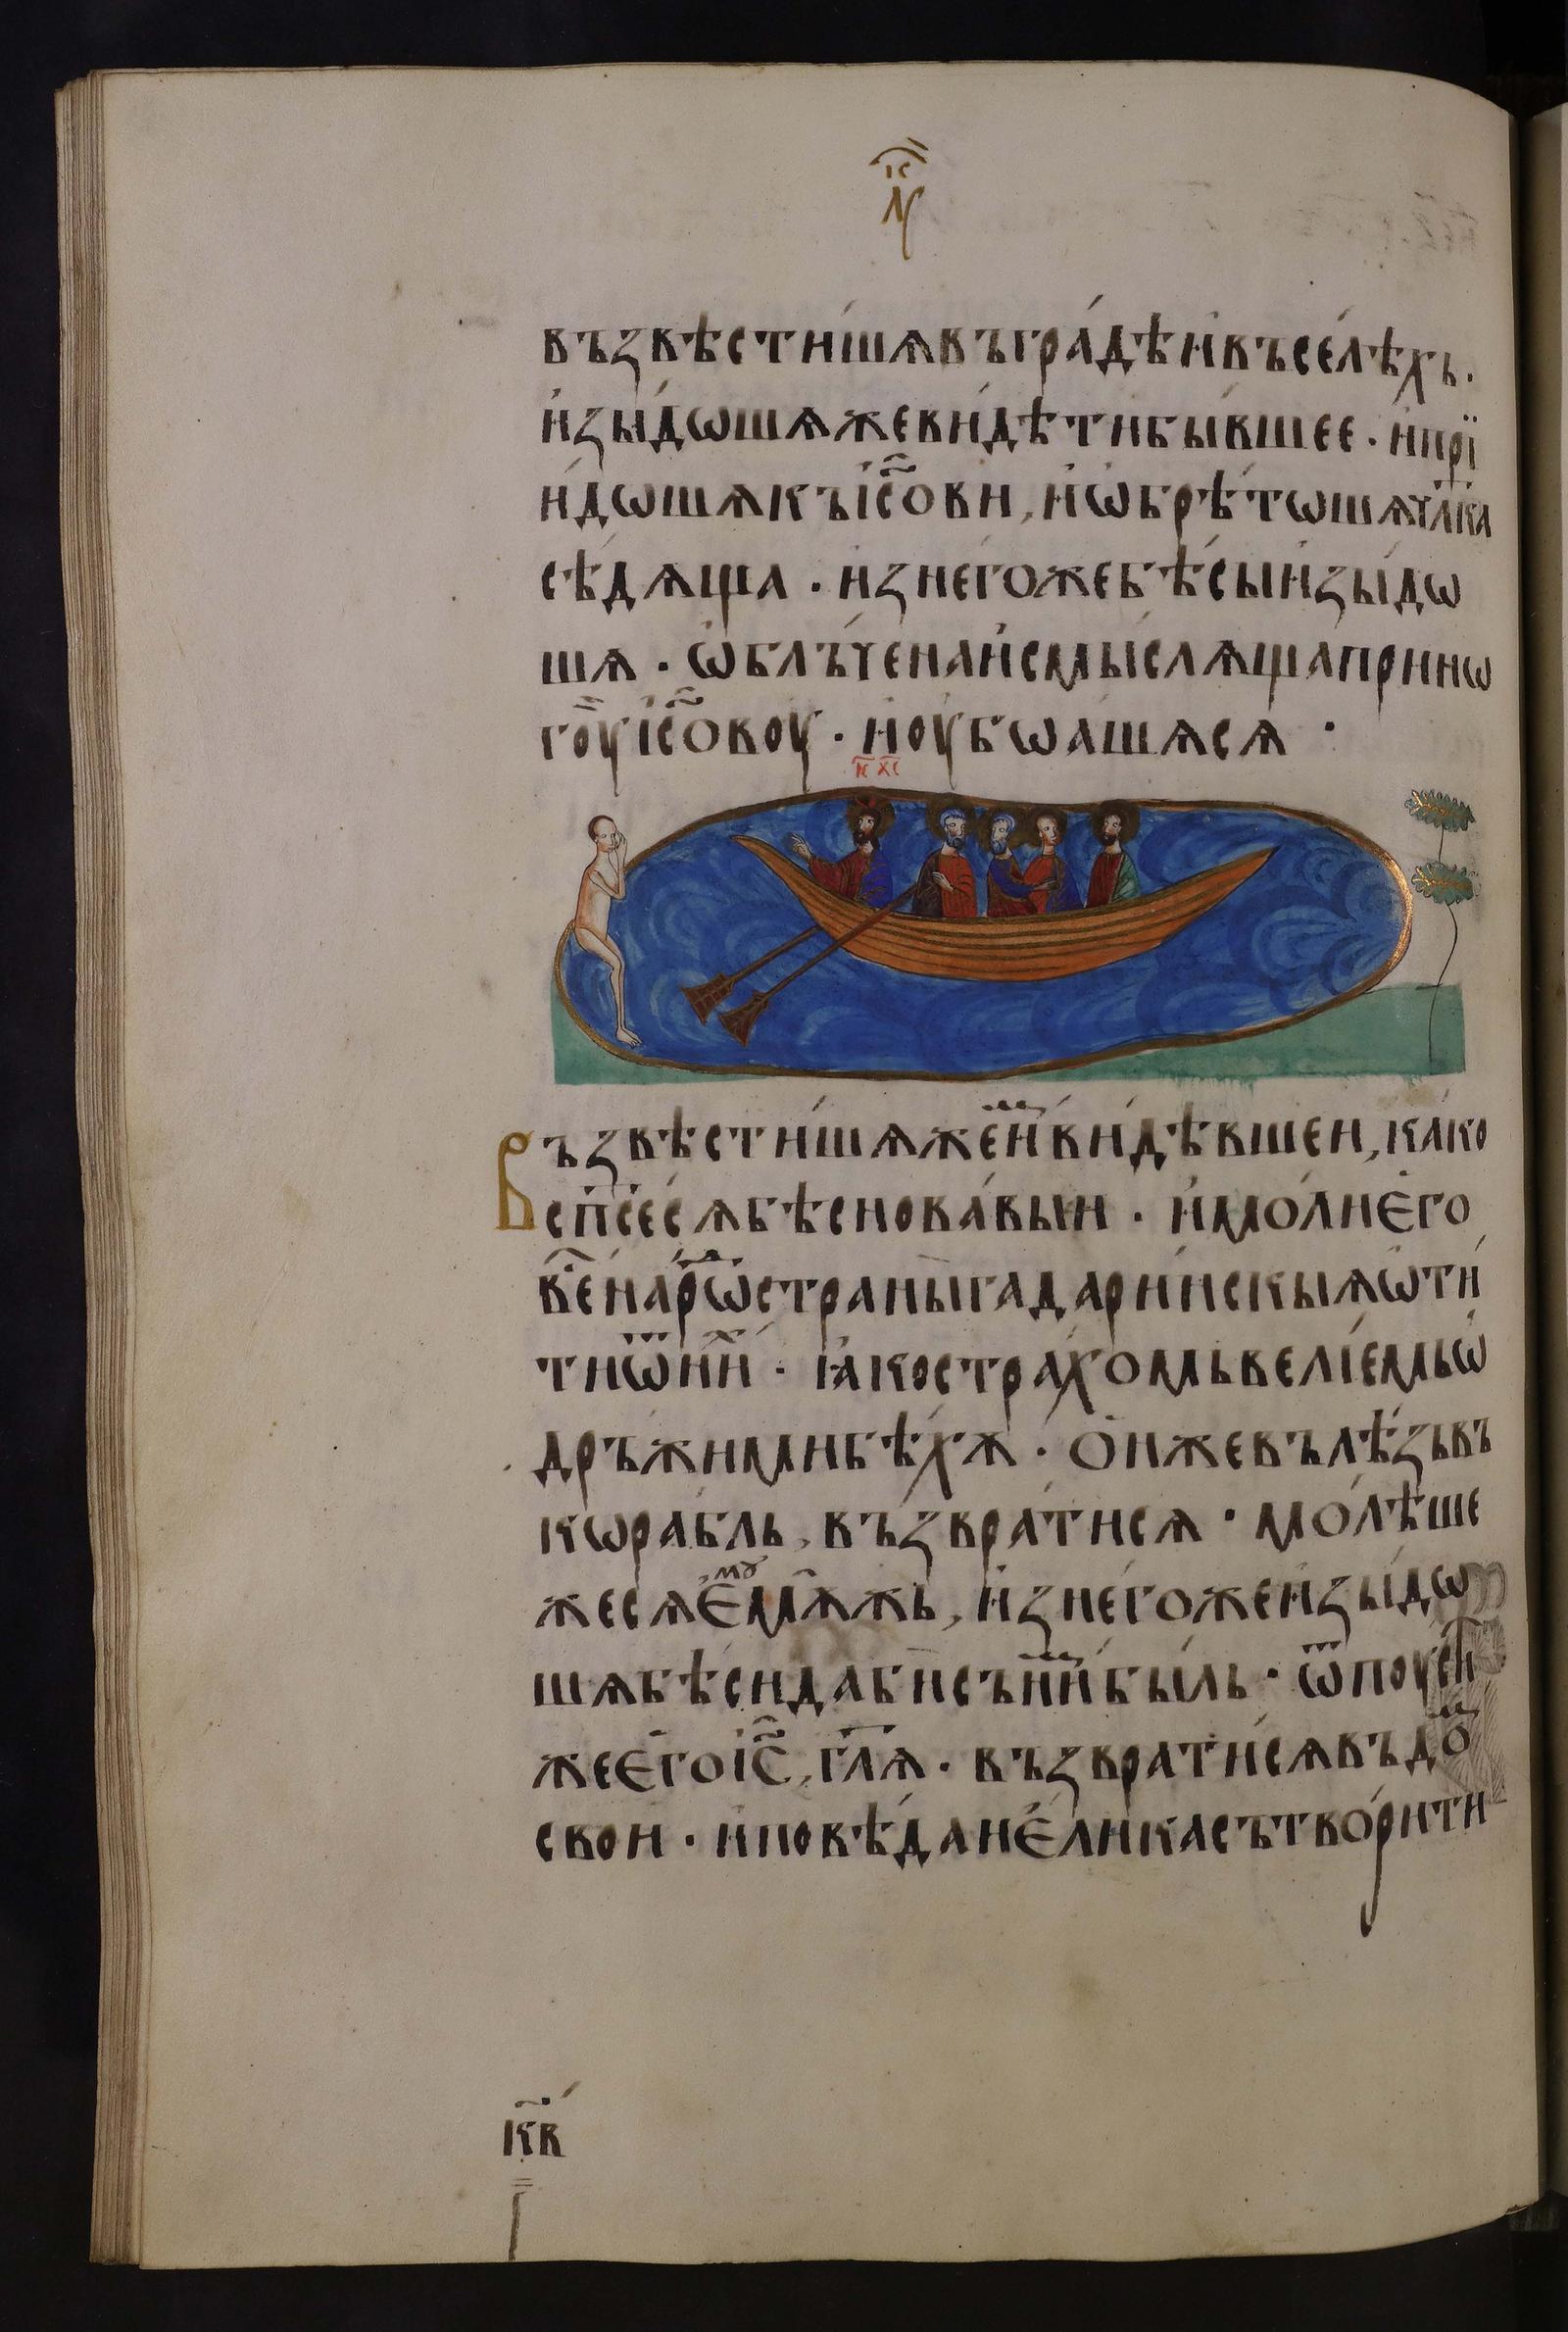 і҃с
л҃
възвѣсти́шѧ въ гра́дѣ и҆ въ се́лѣхъ.
и҆зы́дѡшѧ же ви́дѣти бы́вшее · и҆ прїи́
и́дѡшѧ къ і҆с҃ови, и҆ ѡ҆брѣ́тѡшѧ чл҃ка
сѣ́дѧща · и҆з не́гоже бѣ́сы и҆зы́дѡ
шѧ · ѡ҆блъ́чена и҆ смы́слѧща при нѡ
го́у і҆с҃овоу · и҆ оубѡ́ашѧсѧ ·
і҃с х҃с
Възвѣсти́шѧ же и҆м ви́дѣвшеи, ка́ко
сп҃се́сѧ бѣснова́выи · и҆ мо́ли є҆го
ве҄ нарѡ҄ страны́ гадари́искыѧ ѡ҆ти́
ти ѿ ни́х · ꙗ҆́ко стра́хомь ве́лїемь ѡ҆
дръжи́ми бѣ́хѫ · О҆н же въ лѣ́зь въ
кѡра́бль, възврати́сѧ · мо́лѣше
жесѧ є҆му мѫ́жь, и҆з не́гоже и҆зы́дѡ
шѧ бѣ́си да би съ ни́м бы́ль · ѿпоусти
же є҆го і҆с҃, гл҃ѧ · възврати́сѧ въ до́м
свои · и҆ повѣ́даи є҆ли́ка сътво́ри ти
к҃в